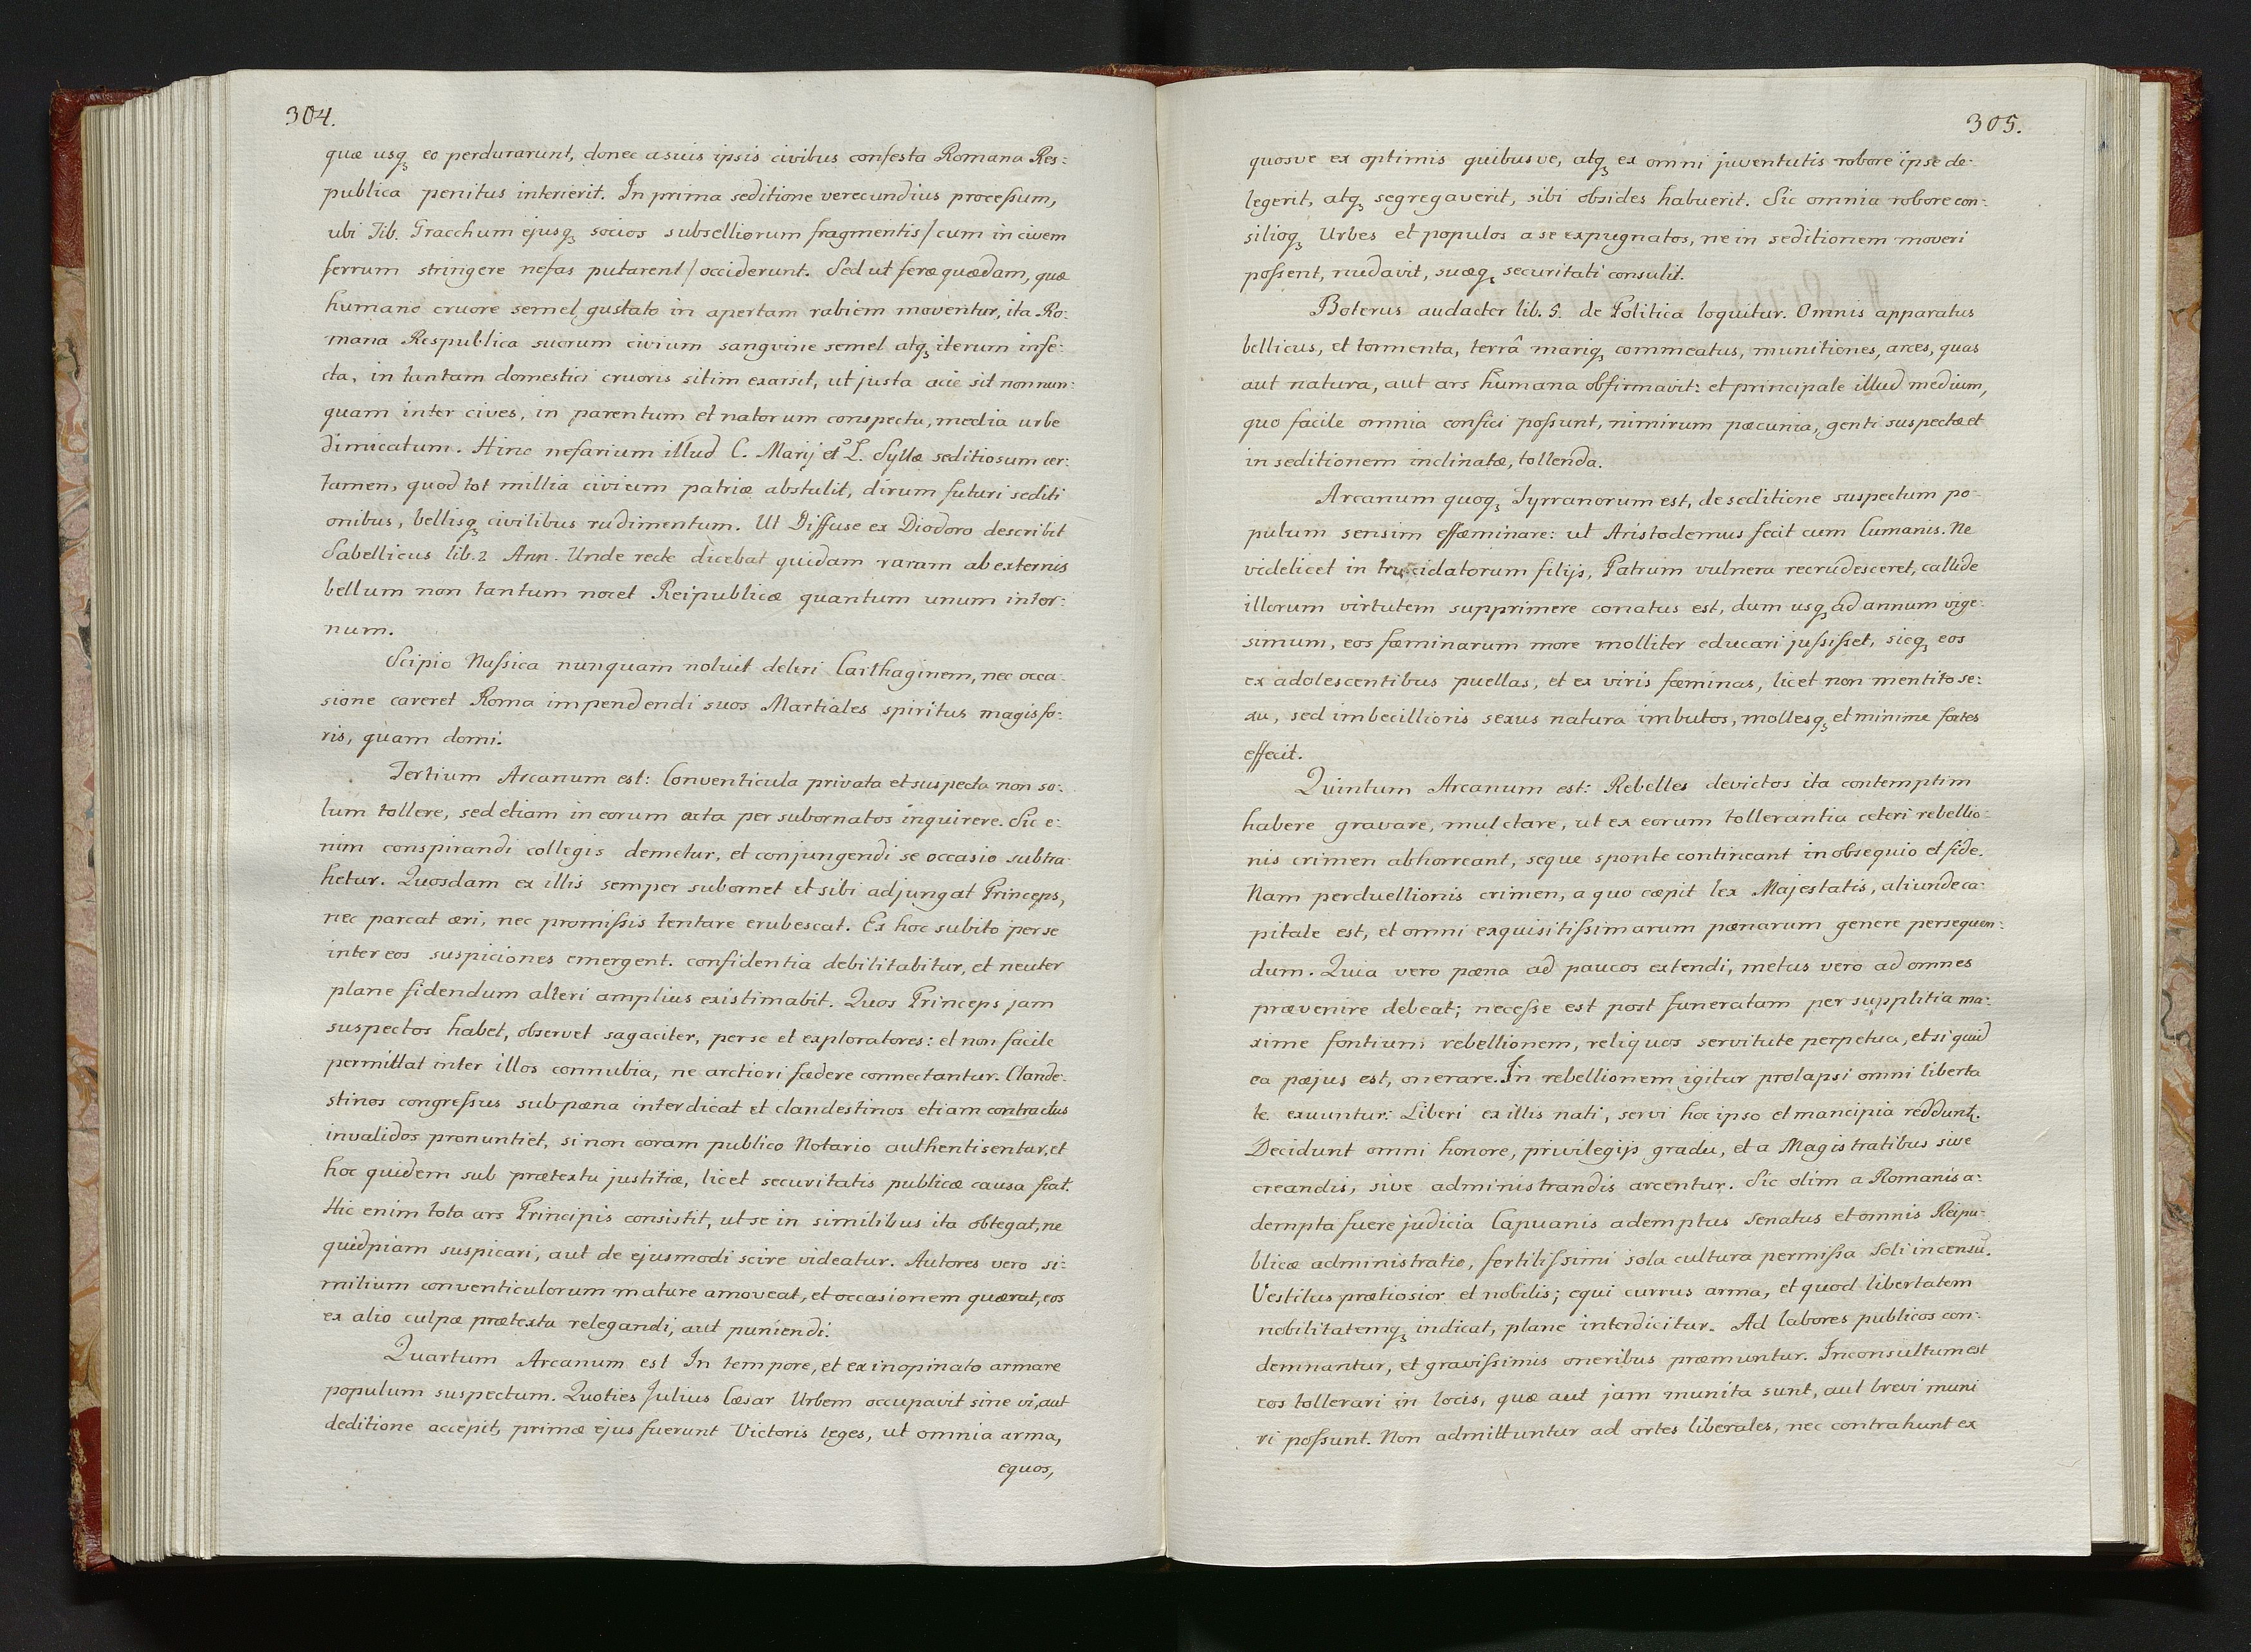 304.
quæ usq₃ eo perdurarunt, donec a suis ipsis civibus confesta Romana Res:
publica penitus interierit. In prima seditione verecundius processum,
ubi Tib. Gracchum ejusq₃ socios subselliorum fragmentis / cum in civem
ferrum stringere nefas putarent / occiderunt. Sed ut feræ quædam, quæ
humano cruore semel gustato in apertam rabiem moventur, ita Ro:
mana Respublica suorum civium sangvine semel atq₃ iterum infe:
cta, in tantam domestici cruoris sitim exarsit, ut justa acie sit non nun:
quam inter cives, in parentum et natorum conspectu, media urbe
dimicatum. Hinc nefarium illud C. Marij et L. Syllæ seditiosum cer:
tamen, quod tot millia civium patriæ abstulit, dirum futuri sediti
onibus, bellisq₃ civilibus rudimentum. Ut Diffuse ex Diodoro describit
Sabellicus lib. 2 Ann. Unde recte dicebat quidam raram ab externis
bellum non tantum nocet Reipublicæ quantum unum inter:
num.
Scipio Nassica nunquam noluit deleri Carthaginem, nec occa
sione careret Roma impendendi suos Martiales spiritus magis fo:
ris, quam domi.
Tertium Arcanum est: Conventicula privata et suspecta non so:
lum tollere, sed etiam in eorum acta per subornatos inquirere. Sic e:
nim conspirandi collegis demetur, et conjungendi se occasio subtra
hetur. Quosdam ex illis semper subornet et sibi adjungat Princeps,
nec parcat æri, nec promissis tentare erubescat. Ex hoc subito per se
inter eos suspiciones emergent. confidentia debilitabitur, et neuter
plane fidendum alteri amplius existimabit. Quos Princeps jam
suspectos habet, observet sagaciter, per se et exploratores: et non facile
permittat inter illos connubia, ne arctiori fœdere connectantur. Clande:
stinos congressus sub pœna interdicat et clandestinos etiam contractus
invalidos pronuntiet, si non coram publico Notario authentisentur, et
hoc quidem sub prætextu justitiæ, licet securitatis publicæ causa fiat.
Hic enim tota ars Principis consistit, ut se in similibus ita obtegat, ne
quidpiam suspicari, aut de ejusmodi scire videatur. Autores vero si:
milium conventiculorum mature amoveat, et occasionem quærat, eos
ex alio culpæ prætextu relegandi, aut puniendi.
Quartum Arcanum est In tempore, et ex inopinato armare
populum suspectum. Quoties Julius Cæsar Urbem occupavit sine vi, aut
deditione accepit, primæ ejus fuerunt Victoris leges, ut omnia arma,
equos,
305.
quosve ex optimis quibusve, atq₃ ex omni juventutis robore ipse de:
legerit, atq₃ segregaverit, sibi obsides habuerit. Sic omnia robore con:
silioq₃ Urbes et populos a se expugnatos, ne in seditionem moveri
possent, nudavit, suæq₃ securitati consulit.
Boterus audacter lib. 5. de Politica loquitur. Omnis apparatus
bellicus, et tormenta, terrâ mariq₃ commeatus, munitiones, arces, quas
aut natura, aut ars humana obfirmavit: et principale illud medium,
quo facile omnia confici possunt, nimirum pæcunia, genti suspectæ et
in seditionem inclinatæ, tollenda.
Arcanum quoq₃ Tyrranorum est, de seditione suspectum po
pulum sensim effæminare: ut Aristodemus fecit cum Cumanis. Ne
videlicet in trucidatorum filijs, Patrum vulnera recrudesceret, callide
illorum virtutem supprimere conatus est, dum usq₃ ad annum vige:
simum, eos fæminarum more molliter educari jussisset, sicq₃ eos
ex adolescentibus puellas, et ex viris fæminas, licet non mentito se:
xu, sed imbecillioris sexus natura imbutos, mollesq₃ et minime fortes
effecit.
Quintum Arcanum est: Rebelles devictos ita contemptim
habere gravare, mulctare, ut ex eorum tollerantia ceteri rebellio:
nis crimen abhorreant, seque sponte contineant in obsequio et fide.
Nam perduellionis crimen, a quo cæpit lex Majestatis, aliunde ca:
pitale est, et omni exquisitissimarum pœnarum genere persequen:
dum. Quia vero pœna ad paucos extendi, metus vero ad omnes
prævenire debeat; necesse est post funeratam per supplitia ma:
xime fontium rebellionem, reliquos servitute perpetua, et si quid
ea pæjus est, onerare. In rebellionem igitur prolapsi omni liberta
te exuuntur: Liberi ex illis nati, servi hoc ipso et mancipia reddunt.
Decidunt omni honore, privilegijs gradu, et a Magistratibus sive
creandis, sive administrandis arcentur. Sic olim a Romanis a:
dempta fuere judicia Capuanis ademptus Senatus et omnis Reipu:
blicæ administratio, fertilissimi sola cultura permissa Soli incensū.
Vestitus prætiosior et nobilis; equi currus arma, et quod libertatem
nobilitatemq₃ indicat, plane interdicitur. Ad labores publicos con:
demnantur, et gravissimis oneribus præmuntur. Inconsultum est
eos tollerari in locis, quæ aut jam munita sunt, aut brevi muni
ri possunt. Non admittuntur ad artes liberales, nec contrahunt ex